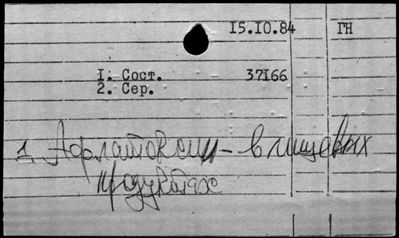 15.10.84 ГН
1. Сост. 37166
2. Сер.
1. Афлатоксин - в пищевых
продуктах